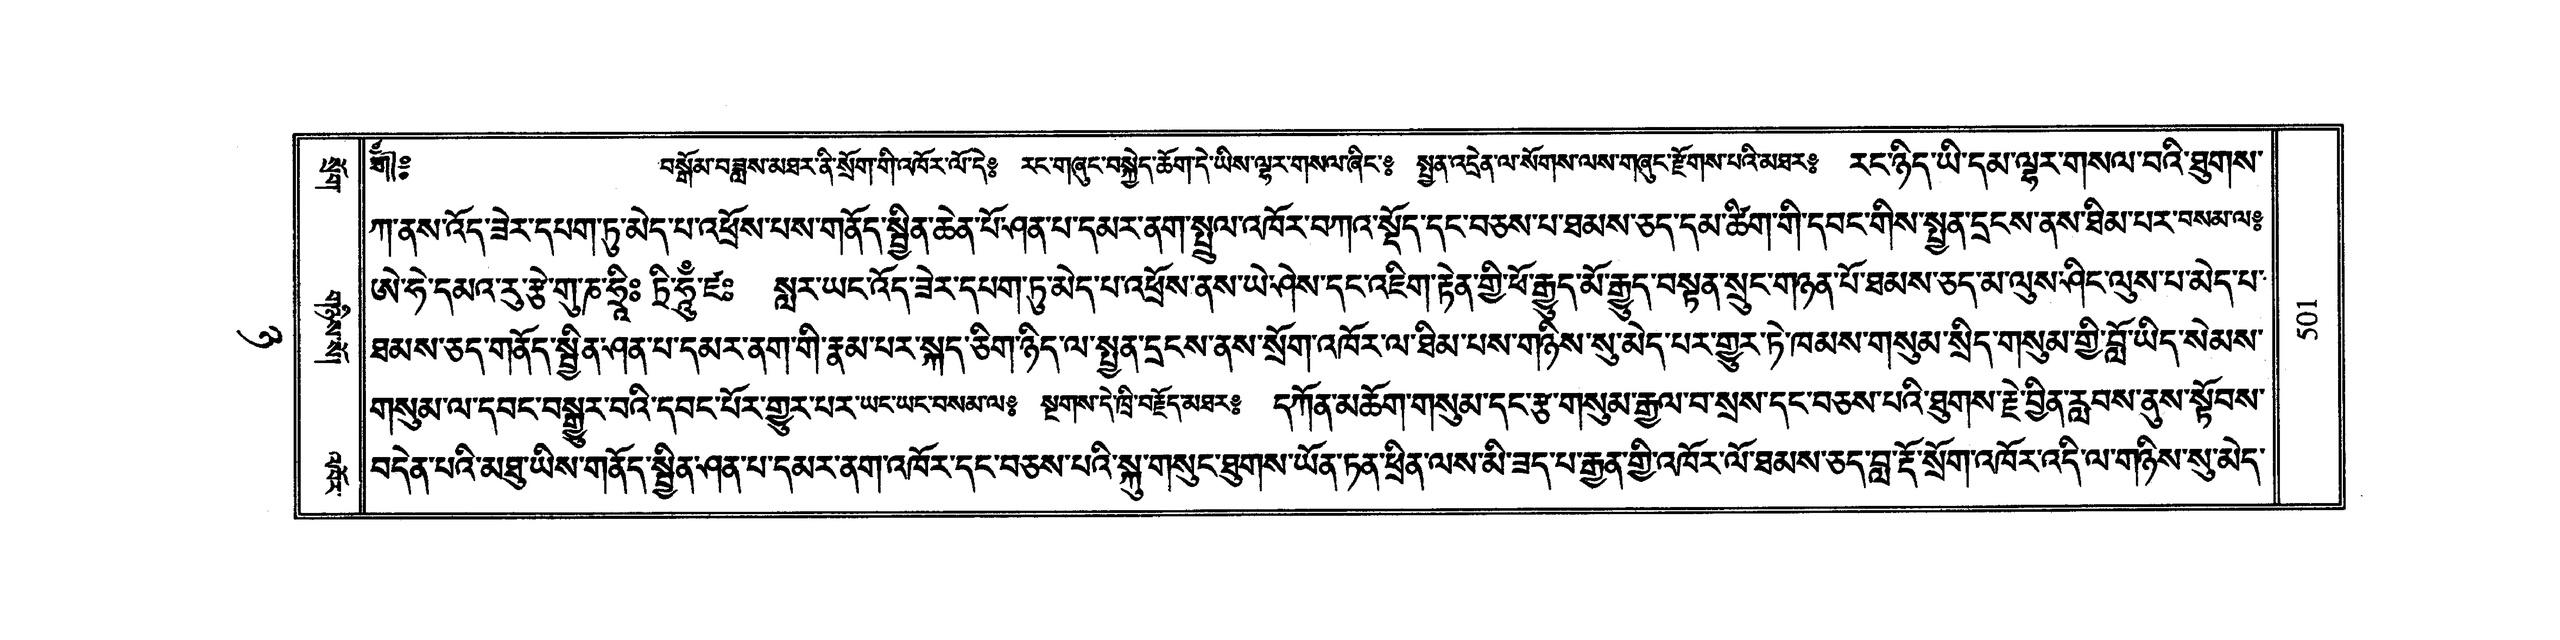 ༄༅།༔ བསྒོམ་བཟླས་མཐར་ནི་སྲོག་གི་འཁོར་ལོ་དེ༔ རང་གཞུང་བསྐྱེད་ཆོག་དེ་ཡིས་ལྷར་གསལ་ཞིང་༔ སྤྱན་འདྲེན་ལ་སོགས་ལས་གཞུང་རྫོགས་པའི་མཐར༔ རང་ཉིད་ཡི་དམ་ལྷར་གསལ་བའི་ཐུགས་
ཀ་ནས་འོད་ཟེར་དཔག་ཏུ་མེད་པ་འཕྲོས་པས་གནོད་སྦྱིན་ཆེན་པོ་ཤན་པ་དམར་ནག་སྤྲུལ་འཁོར་བཀའ་སྡོད་དང་བཅས་པ་ཐམས་ཅད་དམ་ཚིག་གི་དབང་གིས་སྤྱན་དྲངས་ནས་ཐིམ་པར་བསམ་ལ༔
ཨེ་ཧེ་དམའ་རུ་རྩེ་གུ་ཎ་ཧྲཱིཿ ཏྲི་ཧཱུྃ་ཛཿ སླར་ཡང་འོད་ཟེར་དཔག་ཏུ་མེད་པ་འཕྲོས་ནས་ཡེ་ཤེས་དང་འཇིག་རྟེན་གྱི་ཕོ་རྒྱུད་མོ་རྒྱུད་བསྟན་སྲུང་གཉན་པོ་ཐམས་ཅད་མ་ལུས་ཤིང་ལུས་པ་མེད་པ་
ཐམས་ཅད་གནོད་སྦྱིན་ཤན་པ་དམར་ནག་གི་རྣམ་པར་སྐད་ཅིག་ཉིད་ལ་སྤྱན་དྲངས་ནས་སྲོག་འཁོར་ལ་ཐིམ་པས་གཉིས་སུ་མེད་པར་གྱུར་ཏེ་ཁམས་གསུམ་སྲིད་གསུམ་གྱི་བློ་ཡིད་སེམས་
གསུམ་ལ་དབང་བསྒྱུར་བའི་དབང་པོར་གྱུར་པར་ཡང་ཡང་བསམ་ལ༔ སྔགས་དེ་ཁྲི་བརྗོད་མཐར༔ དཀོན་མཆོག་གསུམ་དང་རྩ་གསུམ་རྒྱལ་བ་སྲས་དང་བཅས་པའི་ཐུགས་རྗེ་བྱིན་རླབས་ནུས་སྟོབས་
བདེན་པའི་མཐུ་ཡིས་གནོད་སྦྱིན་ཤན་པ་དམར་ནག་འཁོར་དང་བཅས་པའི་སྐུ་གསུང་ཐུགས་ཡོན་ཏན་ཕྲིན་ལས་མི་ཟད་པ་རྒྱན་གྱི་འཁོར་ལོ་ཐམས་ཅད་བླ་རྡོ་སྲོག་འཁོར་འདི་ལ་གཉིས་སུ་མེད་
501